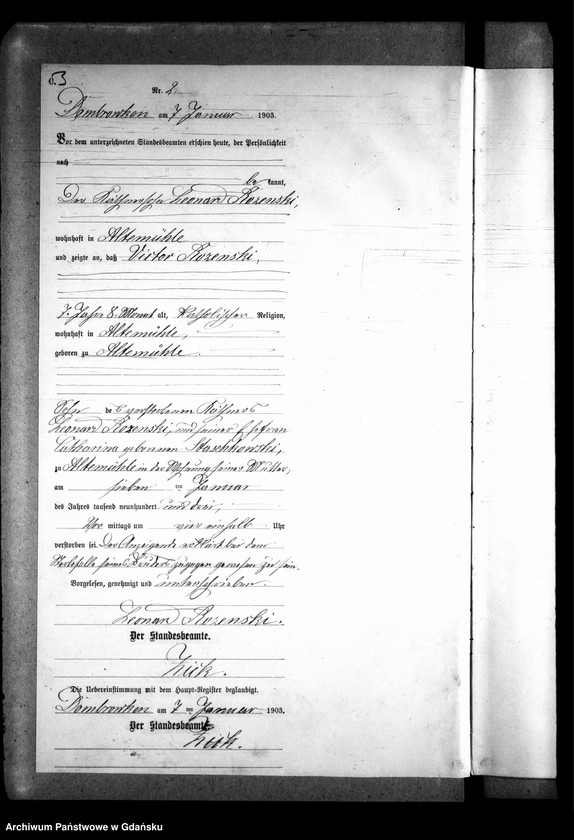 C.
3
Nr. 2
Dombrowken am 7 Januar 1903.
Vor dem unterzeichneten Standesbeamten erschien heute, der Persönlichkeit
nach
be kannt,
Der Käthnersohn Leonard Rozenski,
wohnhaft in Altemühle
und zeigte an, daß Victor Rozenski,
7. Jahr 8. Monat alt, katholischer Religion,
wohnhaft in Altemühle,
geboren zu Altemühle.
Sohn des verstorbenen Käthners
Leonard Rozenski, und seiner Ehefrau
Catharina geborenen Staschkowski,
zu Altemühle in der Wohnung seiner Mutter,
am sieben ten Januar
des Jahres tausend neunhundert und drei,
Vor mittags um vier einhalb Uhr
verstorben sei. Der Anzeigende erklärt bei dem
Sterbefalle seines Bruders zugegen gewesen zu sein.
Vorgelesen, genehmigt und unterschrieben.
Leonard Rozenski.
Der Standesbeamte.
Die Uebereinstimmung mit dem Haupt-Register beglaubigt.
Dombrowken am 7 ten Januar 1903.
Der Standesbeamte
Archiwum Państwowe w Gdańsku